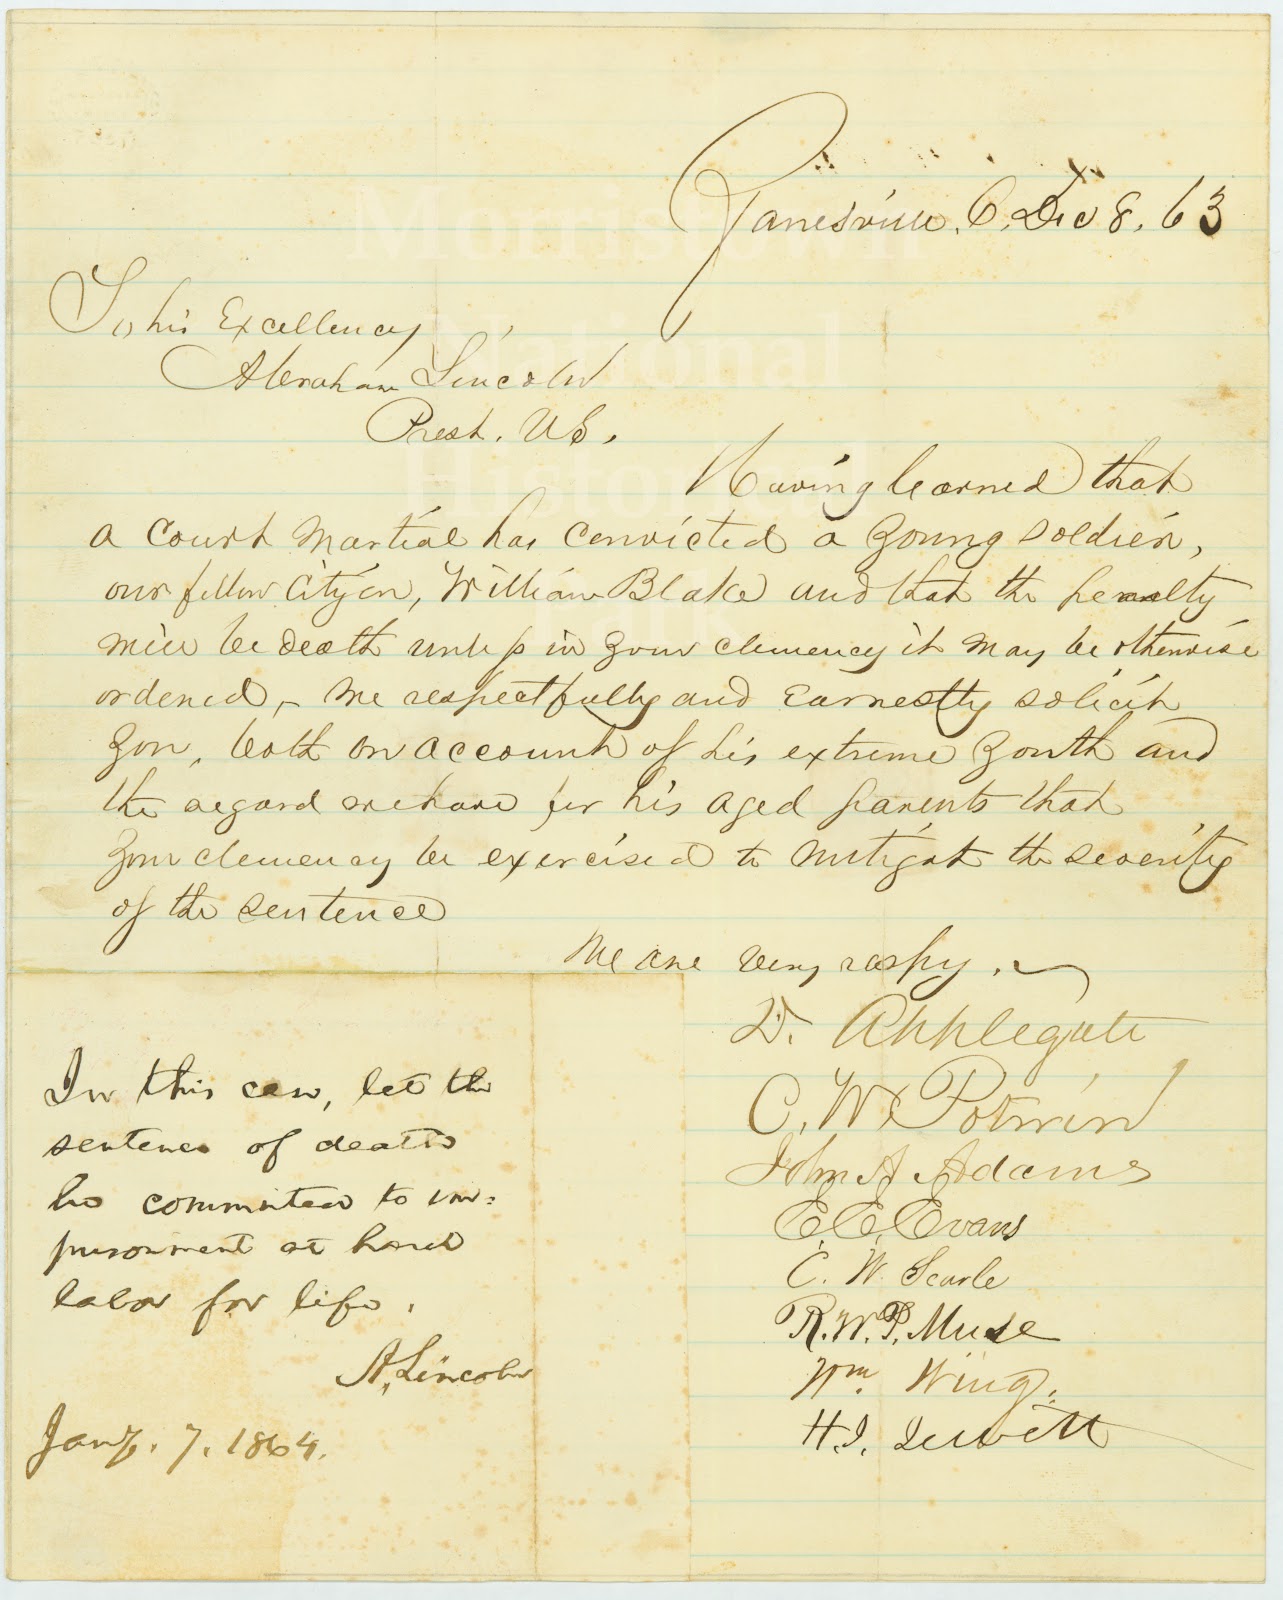 Zanesville, O. Dec 8. 63
To his Excellency
Abraham Lincoln
Prest. U S.
Having learned that
a Court Martial has convicted a young soldier,
our fellow citizen, William Blake and that the penalty
will be death unless in your clemency it may be otherwise
ordered, - We respectfully and earnestly solicit
you, both on account of his extreme youth and
the regard we have for his aged parents that
your clemency be exercised to mitigate the severity
of the sentence
We are very respy.
D. Applegate
C. W. Potwin
John A Adams
E. E. Evans
C. W. Searle
R. W. P. Muse
Wm. Wing.
H. J. Jewett
In this case, let the
sentence of death
be commuted to im-
prisonment at hard
labor for life.
A. Lincoln
Jany. 7. 1864.
Morristown
National
Historical
Park